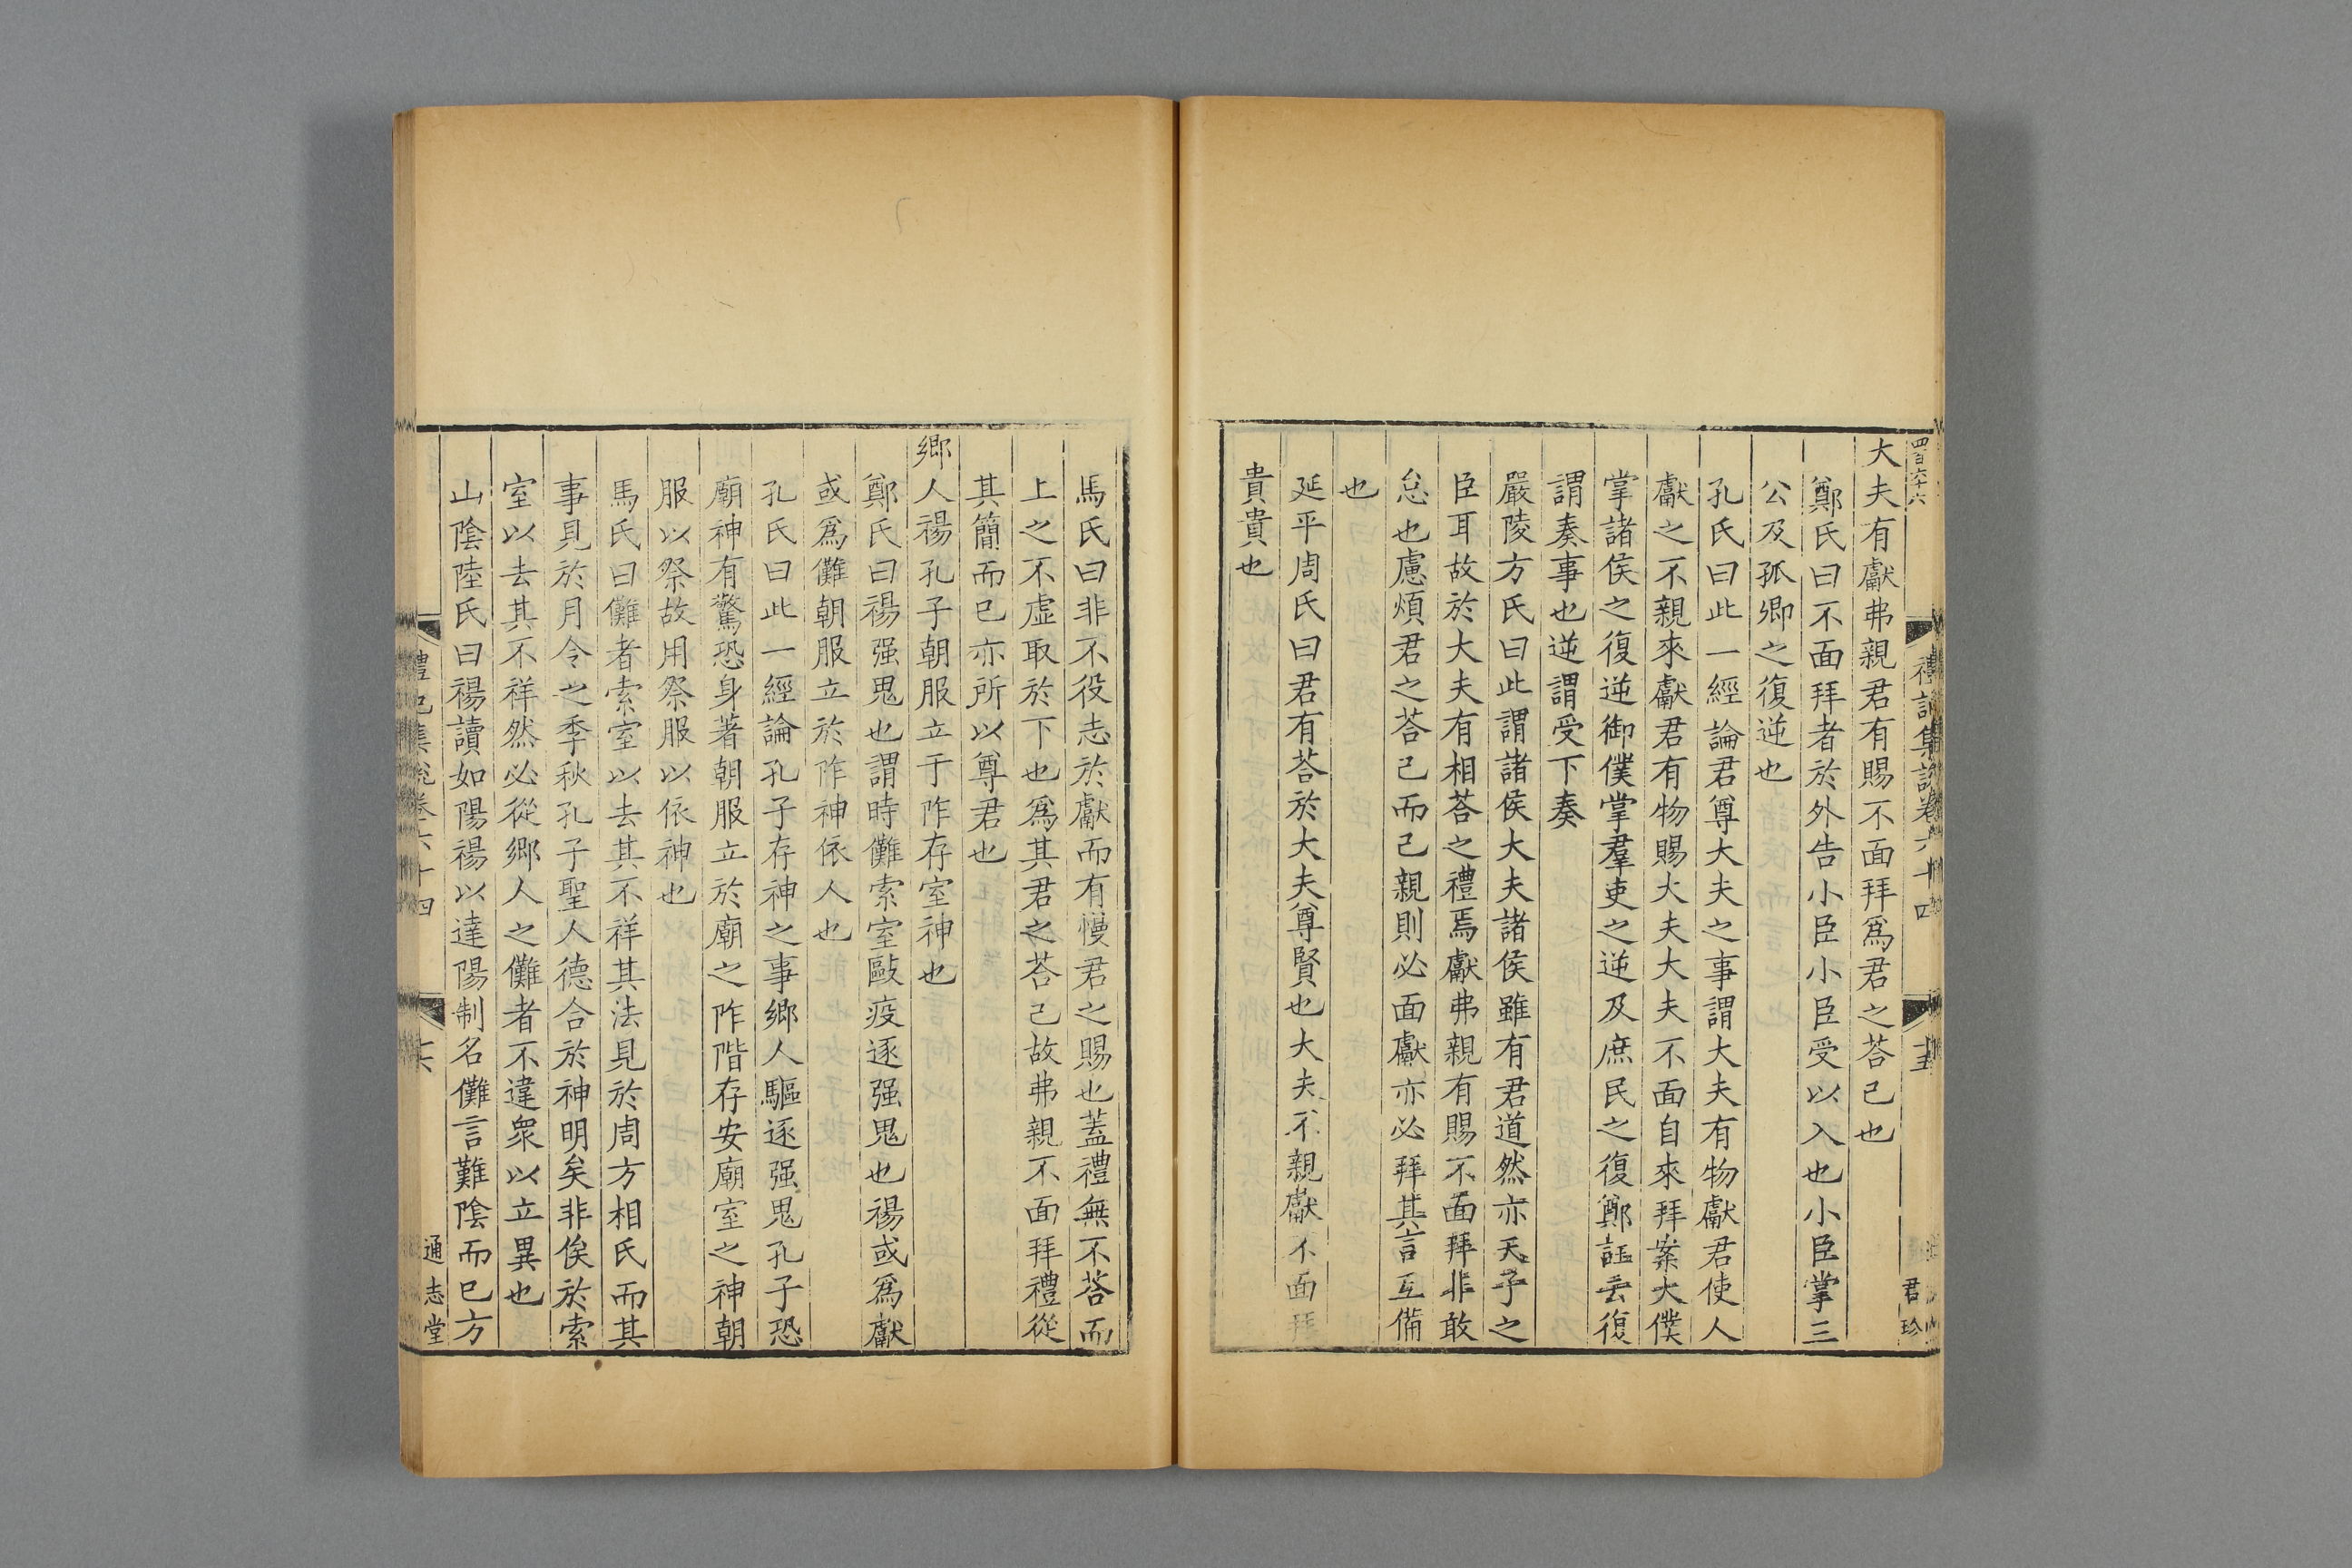 四百六十六
禮記集說卷六十四
十五
君珍
大夫有獻弗親君有賜不面拜爲君之荅己也
鄭氏曰不面拜者於外告小臣小臣受以入也小臣掌三
公及孤卿之復逆也
孔氏曰此一經論君尊大夫之事謂大夫有物獻君使人
獻之不親來獻君有物賜大夫大夫不面自來拜案大僕
掌諸侯之復逆御僕掌羣吏之逆及庶民之復鄭註云復
謂奏事也逆謂受下奏
嚴陵方氏曰此謂諸侯大夫諸侯雖有君道然亦天子之
臣耳故於大夫有相荅之禮焉獻弗親有賜不面拜非敢
怠也慮煩君之荅己而己親則必面獻亦必拜其言互備
也
延平周氏曰君有荅於大夫尊賢也大夫不親獻不面拜
貴貴也
馬氏曰非不役志於獻而有慢君之賜也蓋禮無不荅而
上之不虛取於下也爲其君之荅己故弗親不面拜禮從
其簡而已亦所以尊君也
鄉人禓孔子朝服立于阼存室神也
鄭氏曰禓强鬼也謂時儺索室毆疫逐强鬼也禓或爲獻
或爲儺朝服立於阼神依人也
孔氏曰此一經論孔子存神之事鄉人驅逐强鬼孔子恐
廟神有驚恐身著朝服立於廟之阼階存安廟室之神朝
服以祭故用祭服以依神也
馬氏曰儺者索室以去其不祥其法見於周方相氏而其
事見於月令之季秋孔子聖人德合於神明矣非俟於索
室以去其不祥然必從鄉人之儺者不違衆以立異也
山陰陸氏曰禓讀如陽禓以達陽制名儺言難陰而已方
禮記集說卷六十四
十六
通志堂